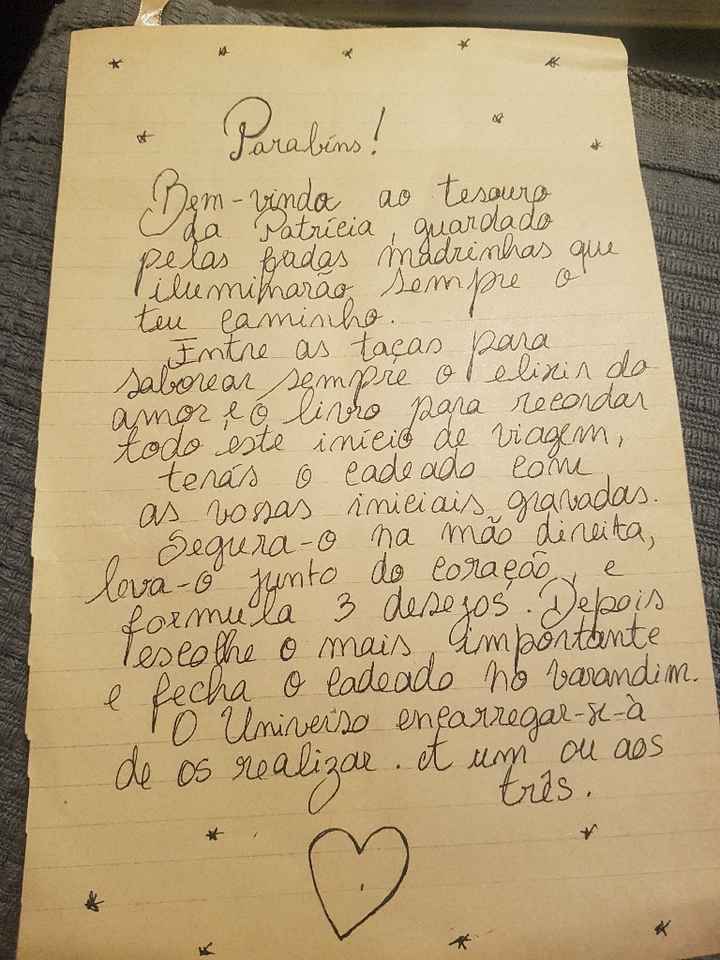 Parabéns!
Bem-vinda ao tesouro
da Patrícia, guardado
pelas fadas madrinhas que
iluminarão sempre o
teu caminho.
Entre as taças para
saborear sempre o elixir do
amor e o livro para recordar
todo este início de viagem,
terás o cadeado com
as vossas iniciais gravadas.
Segura-o na mão direita,
leva-o junto do coração, e
formula 3 desejos. Depois
escolhe o mais importante
e fecha o cadeado no varandim.
O Universo encarregar-se-à
de os realizar. A um ou aos
três.